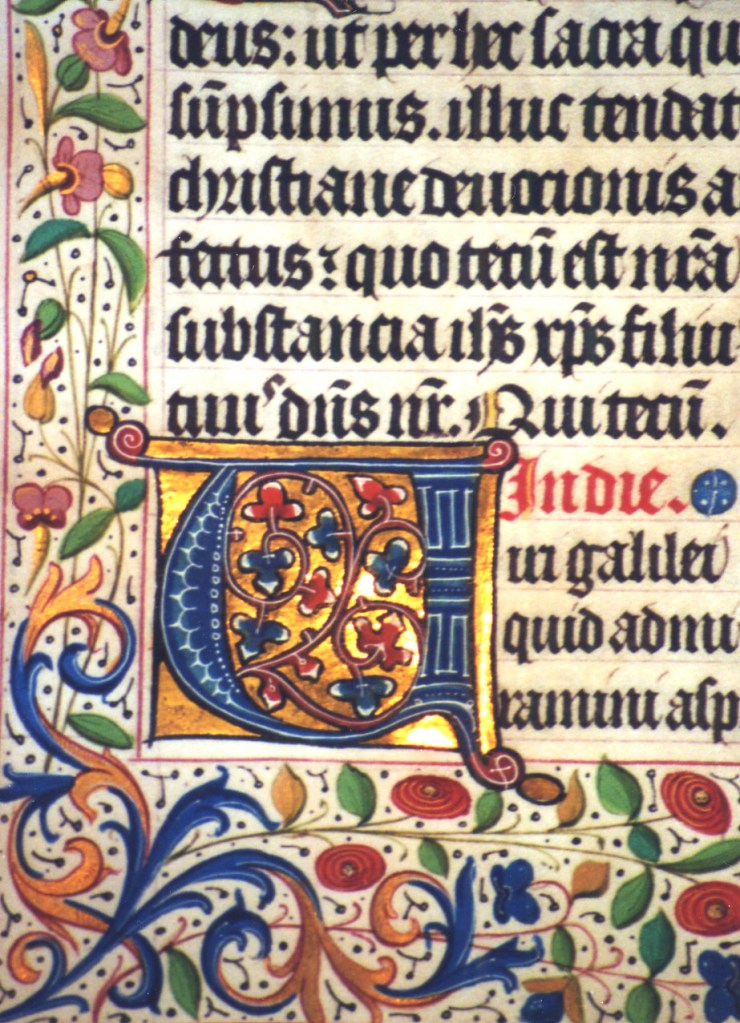 deus: ut per hec sacra qu
sūpsimus. illuc tendat
christiane deuocionis a
fectus: quo tecū est nr̄a
substancia ih̄s xp̄s filiu
tuus dn̄s nr̄. Qui tecū.
In die.
Uiri galilei
quid admi
ramini asp